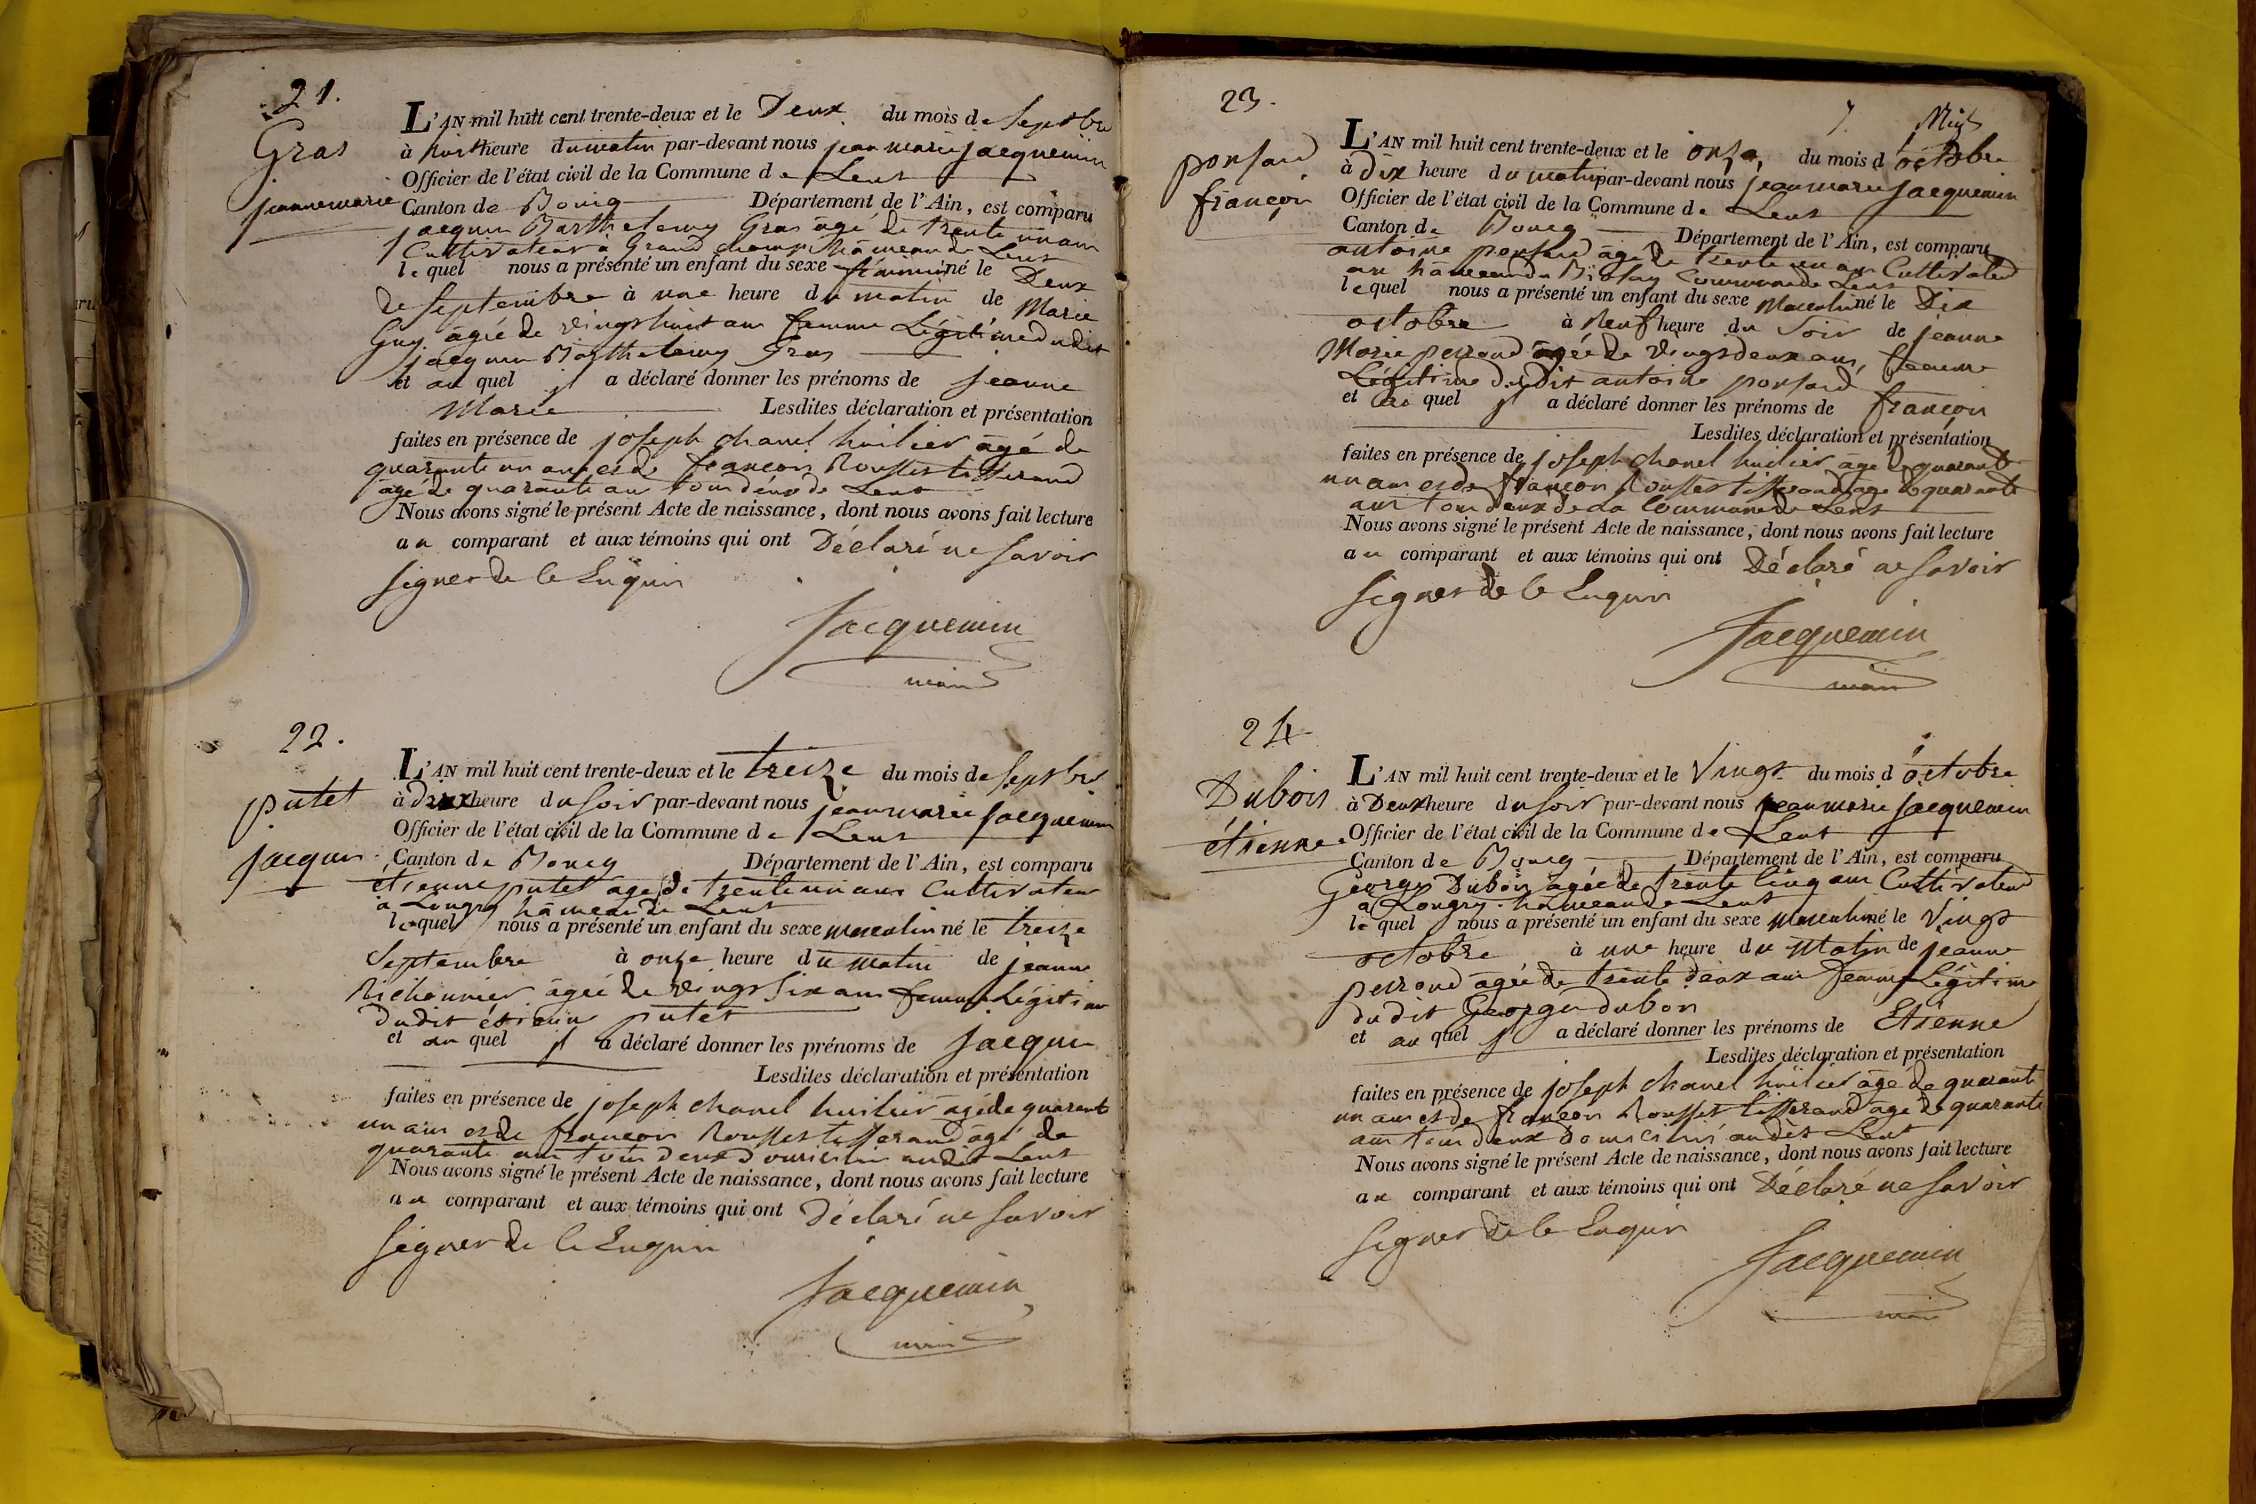 21.
Gras
jeanne marie
L'AN mil huit cent trente-deux et le Deux du mois de Septbre
à huit heure du matin par-devant nous jean marie jacquemin
Officier de l'état civil de la Commune de Lent
Canton de Bourg Département de l'Ain, est comparu
jacques Barthelemy Gras âgé de trente un ans
Cultivateur à Grand champ hâmeau de Lent
lequel nous a présenté un enfant du sexe féminin né le Deux
de septembre à une heure du matin de Marie
Guy âgée de vingt huit ans femme Légitime dudit
jacques Barthelemy Gras
et au quel il a déclaré donner les prénoms de jeanne
Marie Lesdites déclaration et présentation
faites en présence de joseph chanel huilier âgé de
quarante un ans et de françois Rousset tisserand
âgé de quarante ans tous deux de Lent
Nous avons signé le présent Acte de naissance, dont nous avons fait lecture
au comparant et aux témoins qui ont Déclaré ne savoir
signer de ce Enquis
Jacquemin
maire
22.
putet
jacques
L'AN mil huit cent trente-deux et le treize du mois de Septbre
à heure du soir par-devant nous jean marie jacquemin
Officier de l'état civil de la Commune de Lent
Canton de Bourg Département de l'Ain, est comparu
étienne putet âgé de trente un ans Cultivateur
à Longry hâmeau de Lent
lequel nous a présenté un enfant du sexe masculin né le treize
Septembre à onze heure du matin de jeanne
Richonnier âgée de vingt six ans femme Légitime
dudit étienne putet
et au quel il a déclaré donner les prénoms de jacques
Lesdites déclaration et présentation
faites en présence de joseph chanel huilier âgé de quarante
un ans et de françois Rousset tisserand âgé de
quarante ans tous deux domiciliés audit Lent
Nous avons signé le présent Acte de naissance, dont nous avons fait lecture
au comparant et aux témoins qui ont Déclaré ne savoir
signer de ce Enquis
Jacquemin
maire
23.
ponsard
françois
7.
L'AN mil huit cent trente-deux et le onze du mois d'octobre
à dix heure du matin par-devant nous jean marie jacquemin
Officier de l'état civil de la Commune de Lent
Canton de Bourg Département de l'Ain, est comparu
antoine ponsard âgé de trente un ans Cultivateur
au hâmeau du Biolay Commune de Lent
lequel nous a présenté un enfant du sexe Masculin né le Dix
octobre à Neuf heure du soir de jeanne
Marie perroud âgée de vingt deux ans, femme
Légitime dudit antoine ponsard
et au quel il a déclaré donner les prénoms de françois
Lesdites déclaration et présentation
faites en présence de joseph chanel huilier âgé de quarante
un ans et de françois Rousset tisserand âgé de quarante
ans tous deux de la Commune de Lent
Nous avons signé le présent Acte de naissance, dont nous avons fait lecture
au comparant et aux témoins qui ont Déclaré ne savoir
signer de ce Enquis
Jacquemin
maire
24
Dubois
étienne
L'AN mil huit cent trente-deux et le vingt du mois d'octobre
à Deux heure du soir par-devant nous jean marie jacquemin
Officier de l'état civil de la Commune de Lent
Canton de Bourg Département de l'Ain, est comparu
George Dubois âgée de trente cinq ans Cultivateur
à Longry hâmeau de Lent
lequel nous a présenté un enfant du sexe masculin né le vingt
octobre à une heure du Matin de jeanne
perroud âgée de trente deux ans femme Légitime
du dit George dubois
et au quel il a déclaré donner les prénoms de Etienne
Lesdites déclaration et présentation
faites en présence de joseph chanel huilier âgé de quarante
un ans et de françois Rousset tisserand âgé de quarante
ans tous deux domiciliés audit Lent
Nous avons signé le présent Acte de naissance, dont nous avons fait lecture
au comparant et aux témoins qui ont Déclaré ne savoir
signer de ce Enquis
Jacquemin
maire